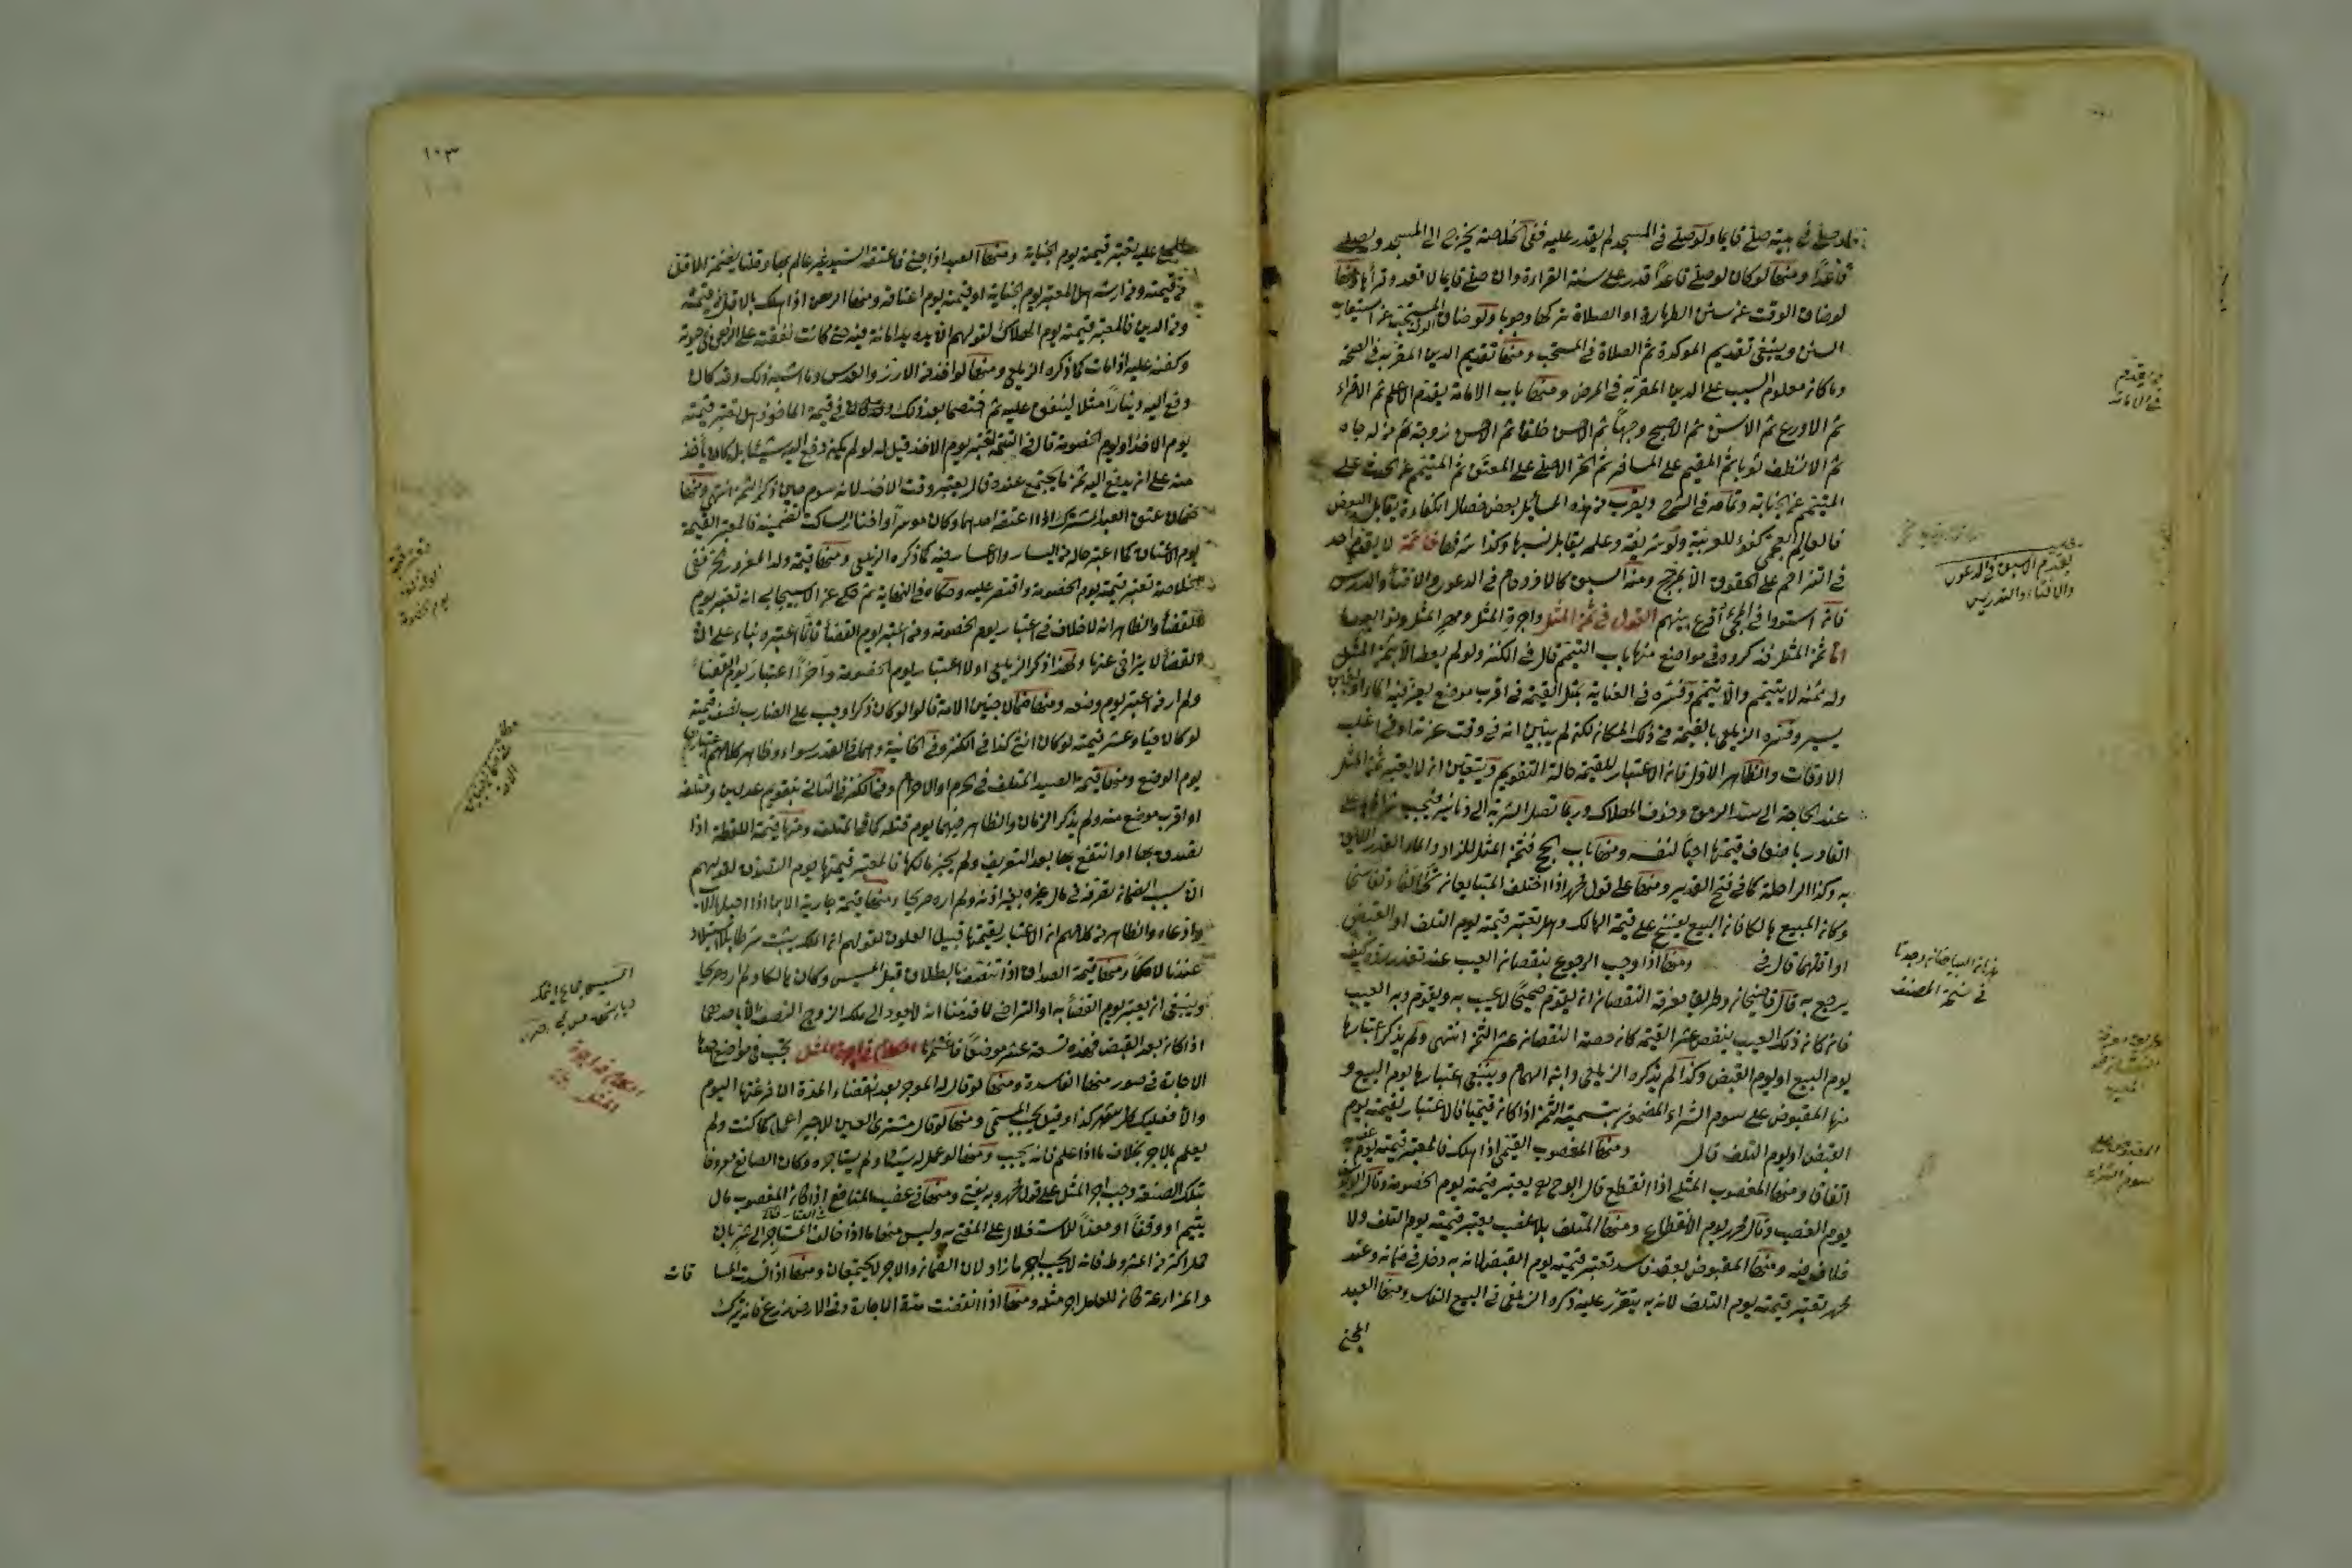 صلى في بيته صلى قائما ولو صلى في المسجد لم يقدر عليه ففي الخلاصة يخرج الى المسجد ويصلي
قاعدا ومنها لو كان لو صلى قاعدا قدر على سنة القراءة وان صلى قائما لا قعد وقرأ ومنها
لو ضاق الوقت عن سنن الطهارة او الصلاة تركها وجوبا ولو ضاق الوقت المستحب عن استيعاب
السنن وينبغي تقديم الموكدة ثم الصلاة في المستحب ومنها تقديم الدين المقر به في الصحة
وما كان معلوم السبب على الدين المقر به في المرض ومنها باب الامامة يقدم الاعلم ثم الاقراء
ثم الاورع ثم الاسن ثم الاصبح وجها ثم الاحسن خلقا ثم الاحسن زوجة ثم من له جاه
ثم الانظف ثوبا ثم المقيم على المسافر ثم الحر الاصلي على المعتق ثم المتيمم عن الحدث على
المتيمم عن الجنابة وتمامه في الشرح ويقرب من هذه المسائل بعض خصال الكفاءة يقابل البعض
فالعالم العجمي كفؤ للعربية ولو شريفة وعلمه يقابل نسبها وكذا شرفها خاتمة لا يقدم احد
في التزاحم على الحقوق الا بمرجح ومنه السبق كالازدحام في الدعوى والافتاء والدرس
فان استووا في المجئ اقرع بينهم القول في ثمن المثل واجرة المثل ومهر المثل
اما ثمن المثل فذكروه في مواضع منها باب التيمم قال في الكنز ولو لم يعطه الا بثمن المثل
وله ثمنه لا يتيمم والا يتيمم وفسره في العناية بمثل القيمة في اقرب موضع يعز فيه الماء او بغبن
يسير وفسره الزيلعي بالقيمة في ذلك المكان لكنه لم يبين انه في وقت عزته او في اغلب
الاوقات والظاهر الاول فان الاعتبار للقيمة حالة التقويم ويتعين ان لا يعتبر ثمن المثل
عند الحاجة الى سد الرمق وخوف الهلاك وربما تصل الشربة الى دنانير فيجب شراؤها على
القادر باضعاف قيمتها احياء لنفسه ومنها باب الحج فثمن المثل للزاد والماء القدر اللايق
به وكذا الراحلة كما في فتح القدير ومنها على قول محمد اذا اختلف المتبايعان تحالفا وتفاسخا
وكان المبيع هالكا فان البيع يفسخ على قيمة الهالك وهل تعتبر قيمته يوم التلف او القبض
او اقلهما قال في ومنها اذا وجب الرجوع بنقصان العيب عند تعذر رده كيف
يرجع به قال قاضيخان وطريق معرفة النقصان ان يقوم صحيحا لا عيب به ويقوم وبه العيب
فان كان ذلك العيب ينقص عشر القيمة كان حصة النقصان عشر الثمن انتهى ولم يذكر اعتبارها
يوم البيع او يوم القبض وكذا لم يذكره الزيلعي وابن الهمام وينبغي اعتبارها يوم البيع و
منها المقبوض على سوم الشراء المضمون بتسمية الثمن اذا كان قيميا فالاعتبار لقيمته يوم
القبض او يوم التلف قال ومنها المغصوب القيمي اذا هلك فالمعتبر قيمته يوم غصبه
اتفاقا ومنها المغصوب المثلي اذا انقطع قال ابو ح يعتبر قيمته يوم الخصومة وقال ابو يوسف
يوم الغصب وقال محمد يوم الانقطاع ومنها المتلف بلا غصب يعتبر قيمته يوم التلف ولا
خلاف فيه ومنها المقبوض بعقد فاسد تعتبر قيمته يوم القبض لانه به دخل في ضمانه وعند
محمد تعتبر قيمته يوم التلف لانه به يتقرر عليه ذكره الزيلعي في البيع الفاسد ومنها العبد
المجني
من يقدم
في الامامة
يقدم الاسبق في الدعوى
والافتاء والتدريس
في نسخة المصنف
المقبوض على
سوم الشراء
١٠٣
عليه تعتبر قيمته يوم الجناية ومنها العبد اذا جنى فاعتقه السيد غير عالم بها وقلنا يضمن الاقل
من قيمته ومن ارشه هل المعتبر يوم الجناية او قيمته يوم اعتاقه ومنها الرهن اذا هلك بالاقل من قيمته
ومن الدين فالمعتبر قيمته يوم الهلاك لقولهم ان يده يد امانة فيه حتى كانت نفقته على الراهن في حيوته
وكفنه عليه اذا مات كما ذكره الزيلعي ومنها لو اخذ من الارز والعدس وما اشبه ذلك وقد كان
دفع اليه دينارا مثلا لينفق عليه ثم اختصما بعد ذلك في قيمة الماخوذ هل تعتبر قيمته
يوم الاخذ او يوم الخصومة قال في التتمة تعتبر يوم الاخذ قيل له لو لم يكن دفع اليه شيئا بل كان يأخذ
منه على ان يدفع اليه ثمن ما يجتمع عنده قال يعتبر وقت الاخذ لانه سوم حين ذكر الثمن انتهى ومنها
ضمان عتق العبد المشترك اذا اعتقه احدهما وكان موسرا واختار الساكت تضمينه فالمعتبر القيمة
يوم الاعتاق كما اعتبر حاله من اليسار والاعسار فيه كما ذكره الزيلعي ومنها قيمة ولد المغرور الحر ففي
الخلاصة تعتبر قيمته يوم الخصومة واقتصر عليه وحكاه في النهاية ثم حكى عن الاسبيجابي انه تعتبر يوم
القضاء والظاهر انه لا خلاف في اعتبار يوم الخصومة ومن اعتبر يوم القضاء فانما اعتبره بناء على ان
القضاء لا يتراخى عنها ولهذا ذكر الزيلعي اولا اعتبار يوم الخصومة وآخرا اعتبار يوم القضاء
ولم ار من اعتبر يوم وضعه ومنها ضمان جنين الامة قالوا لو كان ذكرا وجب على الضارب نصف قيمته
لو كان حيا وعشر قيمته لو كان انثى كذا في الكنز وفي الخانية وهما في القدر سواء وظاهر كلامهم اعتبارها
يوم الوضع ومنها قيمة الصيد المتلف في الحرم او الاحرام وفي الكنز في الثاني بتقويم عدلين في مقتله
او اقرب موضع منه ولم يذكر الزمان والظاهر فيهما يوم قتله كما في المتلف ومنها قيمة اللقطة اذا
تصدق بها او انتفع بها بعد التعريف ولم يجز مالكها فالمعتبر قيمتها يوم التصدق لقولهم
ان سبب الضمان تصرفه في مال غيره بغير اذنه ولم اره صريحا ومنها قيمة جارية الابن اذا احبلها الاب
وادعاه والظاهر من كلامهم ان الاعتبار لقيمتها قبيل العلوق لقولهم ان الملك يثبت شرطا للاستيلاد
عندنا لا حكما ومنها قيمة الصداق اذا تنصف بالطلاق قبل المسيس وكان هالكا ولم ار صريحا
وينبغي ان يعتبر يوم القضاء به او التراضي لما قدمنا انه لا يعود الى ملك الزوج النصف الا باحدهما
اذا كان بعد القبض فهذه تسعة عشر موضعا فاغتنمها الكلام في اجرة المثل تجب في مواضع احدها
الاجارة في صور منها الفاسدة ومنها لو قال له الموجر بعد انقضاء المدة ان فرغتها اليوم
والا فعليك كل شهر كذا وقيل يجب المسمى ومنها لو قال مشتري العين للاجير اعمل كما كنت ولم
يعلم بالاجر بخلاف ما اذا علم فانه يجب ومنها لو عمل له شيئا ولم يستاجره وكان الصانع معروفا
بتلك الصنعة وجب اجر المثل على قول محمد وبه يفتى ومنها في غصب المنافع اذا كان المغصوب مال
يتيم او وقفا او معدا للاستغلال على المفتى به وليس منها ما اذا خالف المستاجر الى شر بان
حمل اكثر من المشروط فانه لا يجب اجر ما زاد لان الضمان والاجر لا يجتمعان ومنها اذا فسدت المسا قات
والمزارعة كان للعامل اجر مثله ومنها اذا انقضت مدة الاجارة وفي الارض زرع فانه يترك
الكلام في اجرة
المثل